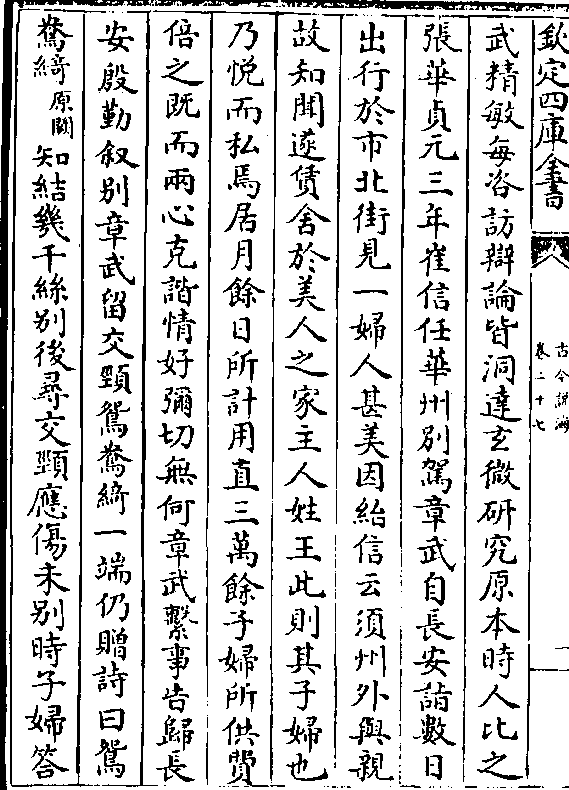 欽定四庫全書
古今說海
卷二十七
一
武精敏每咨訪辯論皆洞達玄微研究原本時人比之
張華貞元三年崔信任華州別駕章武自長安詣數日
出行於市北街見一婦人甚美因紿信云須州外與親
故知聞遂賃舍於美人之家主人姓王此則其子婦也
乃悅而私焉居月餘日所計用直三萬餘子婦所供費
倍之既而兩心克諧情好彌切無何章武繫事告歸長
安殷勤叙別章武留交頸鴛鴦綺一端仍贈詩曰鴛
鴦綺原闕知結幾千絲別後尋交頸應傷未別時子婦答